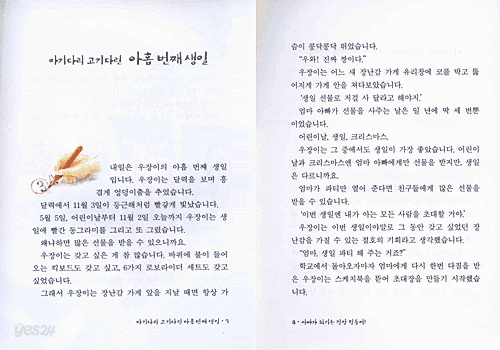 아기다리 고기다린 아홉 번째 생일
3
내일은 우장이의 아홉 번째 생일
입니다. 우장이는 달력을 보며 흥
겹게 엉덩이춤을 추었습니다.
달력에서 11월 3일이 둥근해처럼 빨갛게 빛났습니다.
5월 5일, 어린이날부터 11월 2일 오늘까지 우장이는 생
일에 빨간 동그라미를 그리고 또 그렸습니다.
왜냐하면 많은 선물을 받을 수 있으니까요.
우장이는 갖고 싶은 게 참 많습니다. 바퀴에 불이 들어
오는 킥보드도 갖고 싶고, 6가지 로보라이더 세트도 갖고
싶었습니다.
그래서 우장이는 장난감 가게 앞을 지날 때면 항상 가
아기다리 고기다린 아홉 번째 생일 · 7
슴이 콩닥콩닥 뛰었습니다.
“우와! 진짜 짱이다.”
우장이는 어느 새 장난감 가게 유리창에 코를 박고 뚫
어지게 가게 안을 쳐다보았습니다.
‘생일 선물로 저걸 사 달라고 해야지.’
엄마 아빠가 선물을 사주는 날은 일 년에 딱 세 번뿐
이었습니다.
어린이날, 생일, 크리스마스.
우장이는 그 중에서도 생일이 가장 좋았습니다. 어린이
날과 크리스마스엔 엄마 아빠에게만 선물을 받지만, 생일
은 다르니까요.
엄마가 파티만 열어 준다면 친구들에게 많은 선물을
받을 수 있습니다.
‘이번 생일엔 내가 아는 모든 사람을 초대할 거야.’
우장이는 이번 생일이야말로 그 동안 갖고 싶었던 장
난감을 가질 수 있는 절호의 기회라고 생각했습니다.
“엄마, 생일 파티 해 주는 거죠?”
학교에서 돌아오자마자 엄마에게 다시 한번 다짐을 받
은 우장이는 스케치북을 뜯어 초대장을 만들기 시작했습
니다.
8 · 아빠가 되기는 정말 힘들어!
yes24